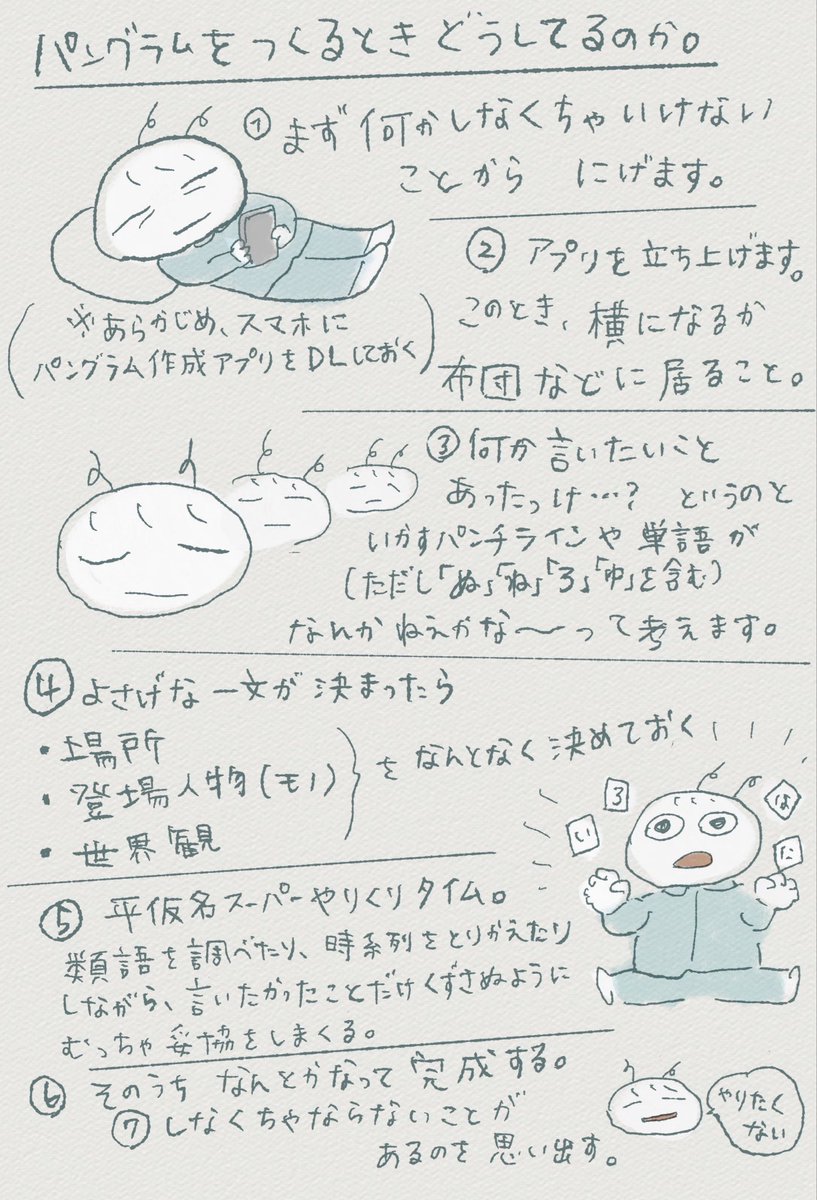 パングラムをつくるときどうしてるのか。
①まず何かしなくちゃいけない
ことから にげます。
②アプリを立ち上げます。
このとき、横になるか
布団などに居ること。
(※あらかじめ、スマホに
パングラム作成アプリをDLしておく)
③何か言いたいこと
あったっけ…? というのと
いかすパンチラインや単語が
(ただし「ぬ」「ね」「ろ」「ゆ」を含む)
なんかねえかな〜って考えます。
④よさげな一文が決まったら
・場所
・登場人物(モノ)
・世界観
をなんとなく決めておく
い
ろ
は
た
⑤平仮名スーパーやりくりタイム。
類語を調べたり、時系列をとりかえたり
しながら、言いたかったことだけくずさぬように
むっちゃ妥協をしまくる。
⑥そのうち なんとかなって完成する。
⑦しなくちゃならないことが
あるのを思い出す。
やりたく
ない